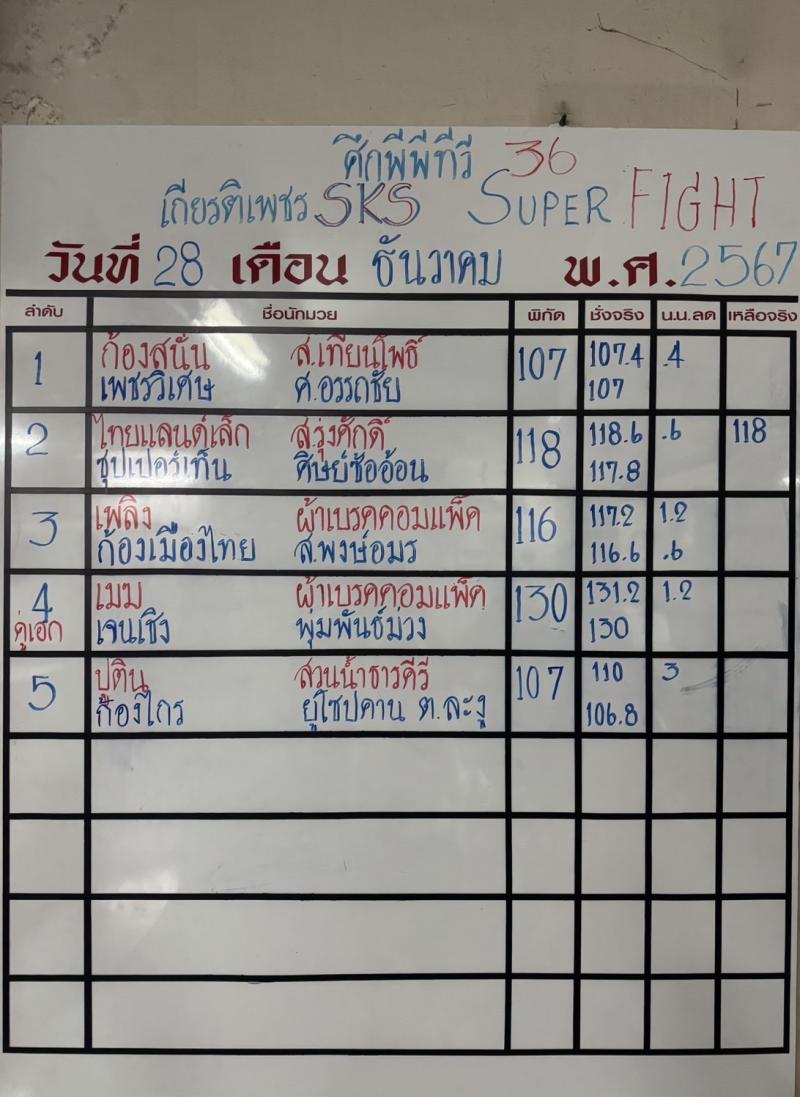 ศึกพีพีทีวี 36
เกียรติเพชร SKS SUPER FIGHT
วันที่ 28 เดือน ธันวาคม พ.ศ. 2567
ลำดับ ชื่อนักมวย พิกัด ชั่งจริง น.น.ลด เหลือจริง
1 ก้องสนั่น ส.เทียนโพธิ์ 107 107.4 .4
เพชรวิเศษ ศ.อรรถชัย 107
2 ไทยแลนด์เล็ก ส.รุ่งศักดิ์ 118 118.6 .6 118
ซุปเปอร์เท็น ศิษย์ซ้ออ้อน 117.8
3 เพลิง ผ้าเบรคคอมแพ็ค 116 117.2 1.2
ก้องเมืองไทย ส.พงษ์อมร 116.6 .6
4 เมฆ ผ้าเบรคคอมแพ็ค 130 131.2 1.2
คู่เอก เจนเชิง พุ่มพันธ์ม่วง 130
5 ปูติน สวนน้ำธารคีรี 107 110 3
ก้องไกร ยูโซปคาน ต.ละงู 106.8